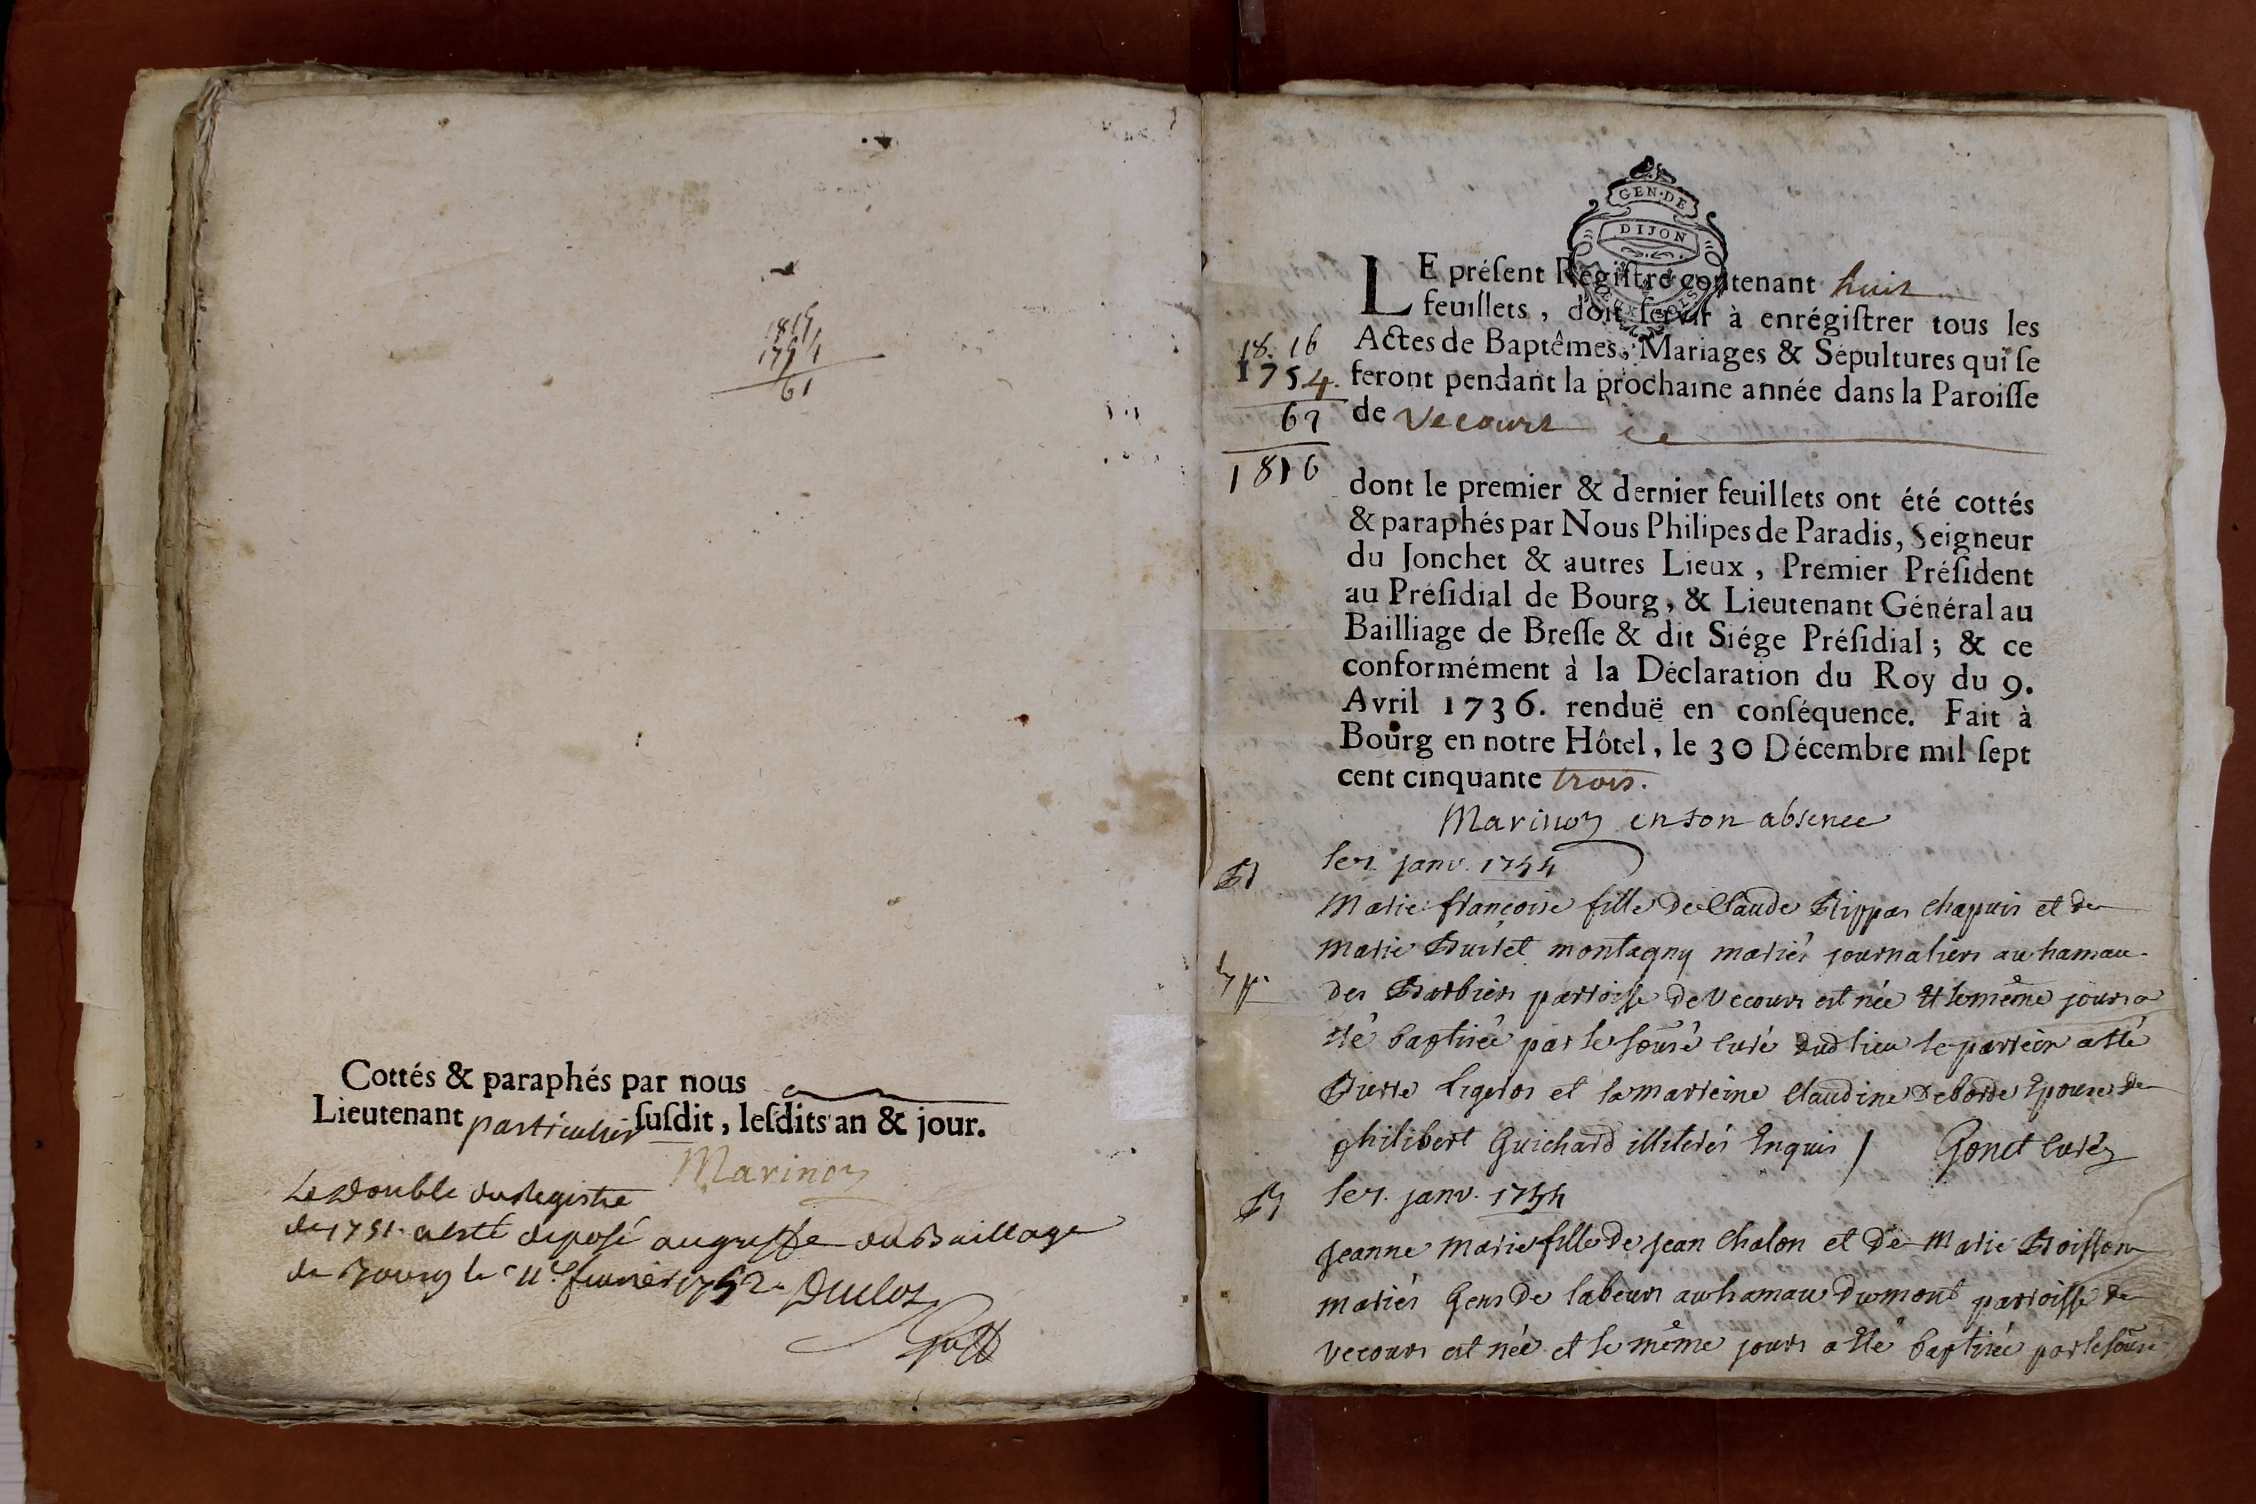 1815
1754
61
Cottés & paraphés par nous
Lieutenant particulier susdit, lesdits an & jour.
Marinon
Le Double du Registre
de 1751. a esté deposé au greffe du Baillage
de Bourg le 11e. fevrier 1752. Duclos
GEN. DE
DIJON
LE présent Régistre contenant huit
feuillets, doit servir à enrégistrer tous les
Actes de Baptêmes, Mariages & Sépultures qui se
feront pendant la prochaine année dans la Paroisse
de Vecourt
18. 16
1754.
62
1816
dont le premier & dernier feuillets ont été cottés
& paraphés par Nous Philipes de Paradis, Seigneur
du Jonchet & autres Lieux, Premier Président
au Présidial de Bourg, & Lieutenant Général au
Bailliage de Bresse & dit Siége Présidial; & ce
conformément à la Déclaration du Roy du 9.
Avril 1736. renduë en conséquence. Fait à
Bourg en notre Hôtel, le 30 Décembre mil sept
cent cinquante trois.
Marinon en son absence
le 1. janv. 1754
Marie françoise fille de Claude Rippas chapuis et de
marie montagny mariés journaliers au hamau
des Barbiers parroisse de vecours est née et le même jours a
été baptisée par le soussé curé dud lieu le parrein a été
Pierre Ligeros et la marreine Claudine Deborde Epouse de
philibert Guichard illiterés Enquis / Gonet curé
B le 1. janv. 1754
jeanne marie fille de jean Chalon et de Marie Boisson
mariés Gens de labeurs au hamau dumont parroisse de
vecours est née et le même jours a été baptisée par le soussé